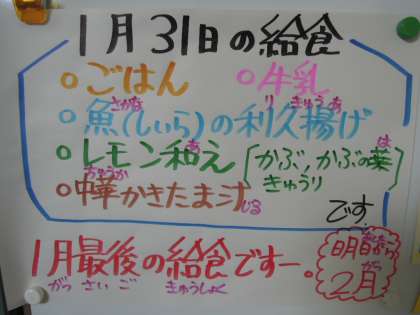 1月31日の給食
○ごはん ○牛乳
さかな り きゅう あ
○魚(しいら)の利久揚げ
あ は
○レモン和え [かぶ,かぶの葉
きゅうり]
ちゅうか
○中華かきたま汁
じる
です
1月最後の給食ですー。
がつ さい ご きゅうしょく
明日から
がつ
2月